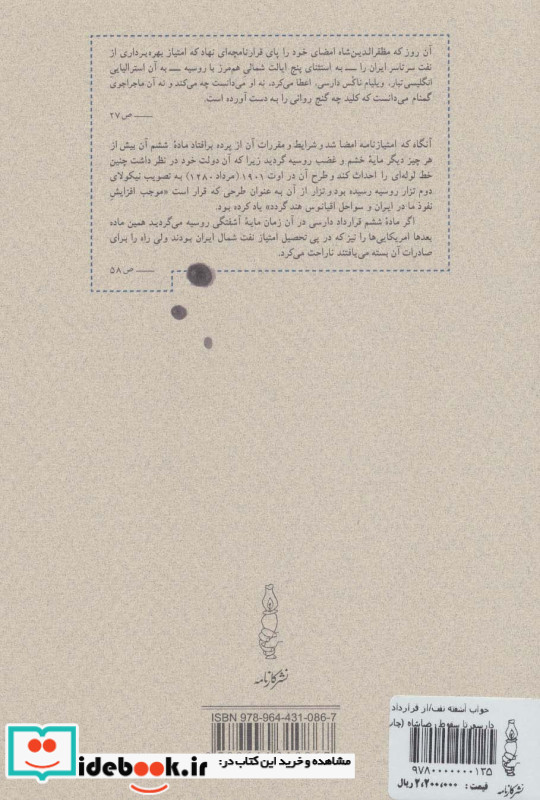 آن روز که مظفرالدین‌شاه امضای خود را پای قرارنامچه‌ای نهاد که امتیاز بهره‌برداری از
نفت سرتاسر ایران را ــ به استثنای پنج ایالت شمالی هم‌مرز با روسیه ــ به آن استرالیایی
انگلیسی تبار، ویلیام ناکس دارسی، اعطا می‌کرد، نه او می‌دانست چه می‌کند و نه آن ماجراجوی
گمنام می‌دانست که کلید چه گنج روانی را به دست آورده است.
ــــ ص ۲۷
آنگاه که امتیازنامه امضا شد و شرایط و مقررات آن از پرده برافتاد مادهٔ ششم آن بیش از
هر چیز دیگر مایهٔ خشم و غضب روسیه گردید زیرا که آن دولت خود در نظر داشت چنین
خط لوله‌ای را احداث کند و طرح آن در اوت ۱۹۰۱ (مرداد ۱۲۸۰) به تصویب نیکولای
دوم تزار روسیه رسیده بود و تزار از آن به عنوان طرحی که قرار است «موجب افزایش
نفوذ ما در ایران و سواحل اقیانوس هند گردد» یاد کرده بود.
اگر مادهٔ ششم قرارداد دارسی در آن زمان مایهٔ آشفتگی روسیه می‌گردید همین ماده
بعدها امریکایی‌ها را نیز که در پی تحصیل امتیاز نفت شمال ایران بودند ولی راه را برای
صادرات آن بسته می‌یافتند ناراحت می‌کرد.
ــــ ص ۵۸
نشر کارنامه
ISBN 978-964-431-086-7
خواب آشفته نفت/از قرارداد
دارسی تا سقوط رضاشاه (چاپ
۹۷۸۰۰۰۰۰۰۰۱۳۵
قیمت : ۲،۲۰۰،۰۰۰ ریال
نشر کارنامه
مشاهده و خرید این کتاب در:
idebook.ir